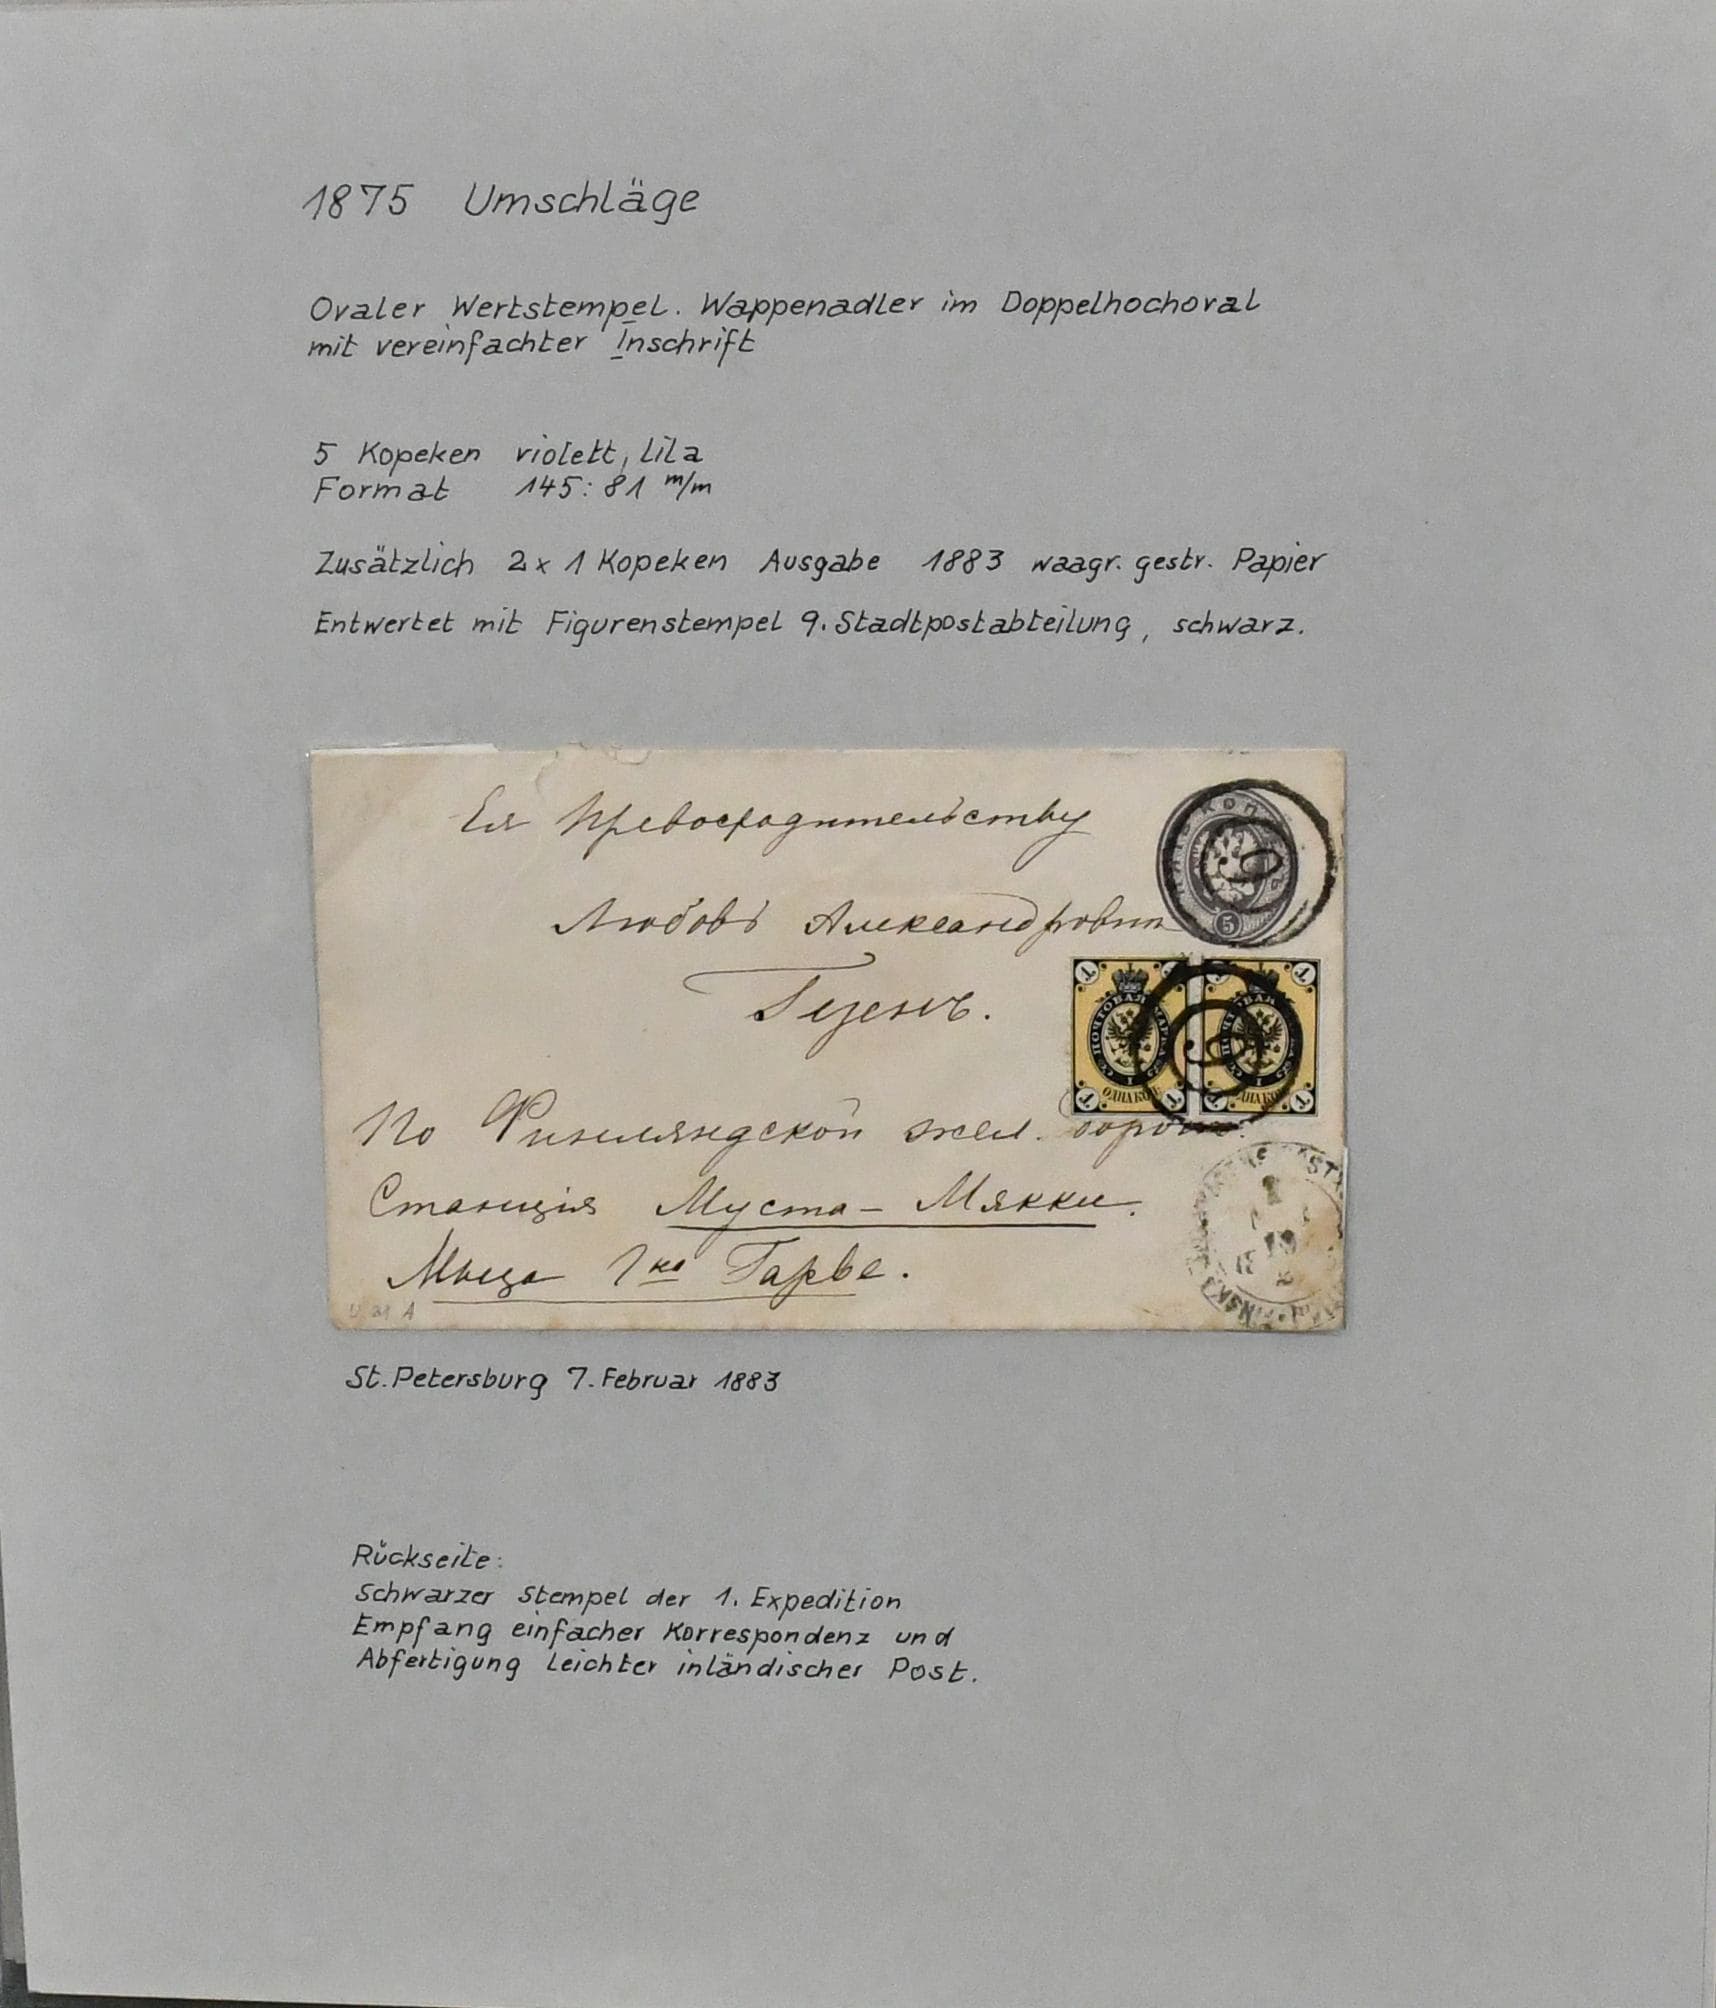 1875 Umschläge
Ovaler Wertstempel. Wappenadler im Doppelhochoval
mit vereinfachter Inschrift
5 Kopeken violett, lila
Format 145:81 m/m
Zusätzlich 2x 1 Kopeken Ausgabe 1883 waagr. gestr. Papier
Entwertet mit Figurenstempel 9. Stadtpostabteilung, schwarz.
Ея Превосходительству
Любовь Александровнѣ
Гезенъ.
По Финляндской жел. дорогѣ.
Станція Муста-Мякки.
Мыза Гарве.
5
9
1 1 1 1
ПОЧТОВАЯ МАРКА
ОДНА КОП.
9
U 31 A
St. Petersburg 7. Februar 1883
Rückseite:
Schwarzer Stempel der 1. Expedition
Empfang einfacher Korrespondenz und
Abfertigung leichter inländischer Post.